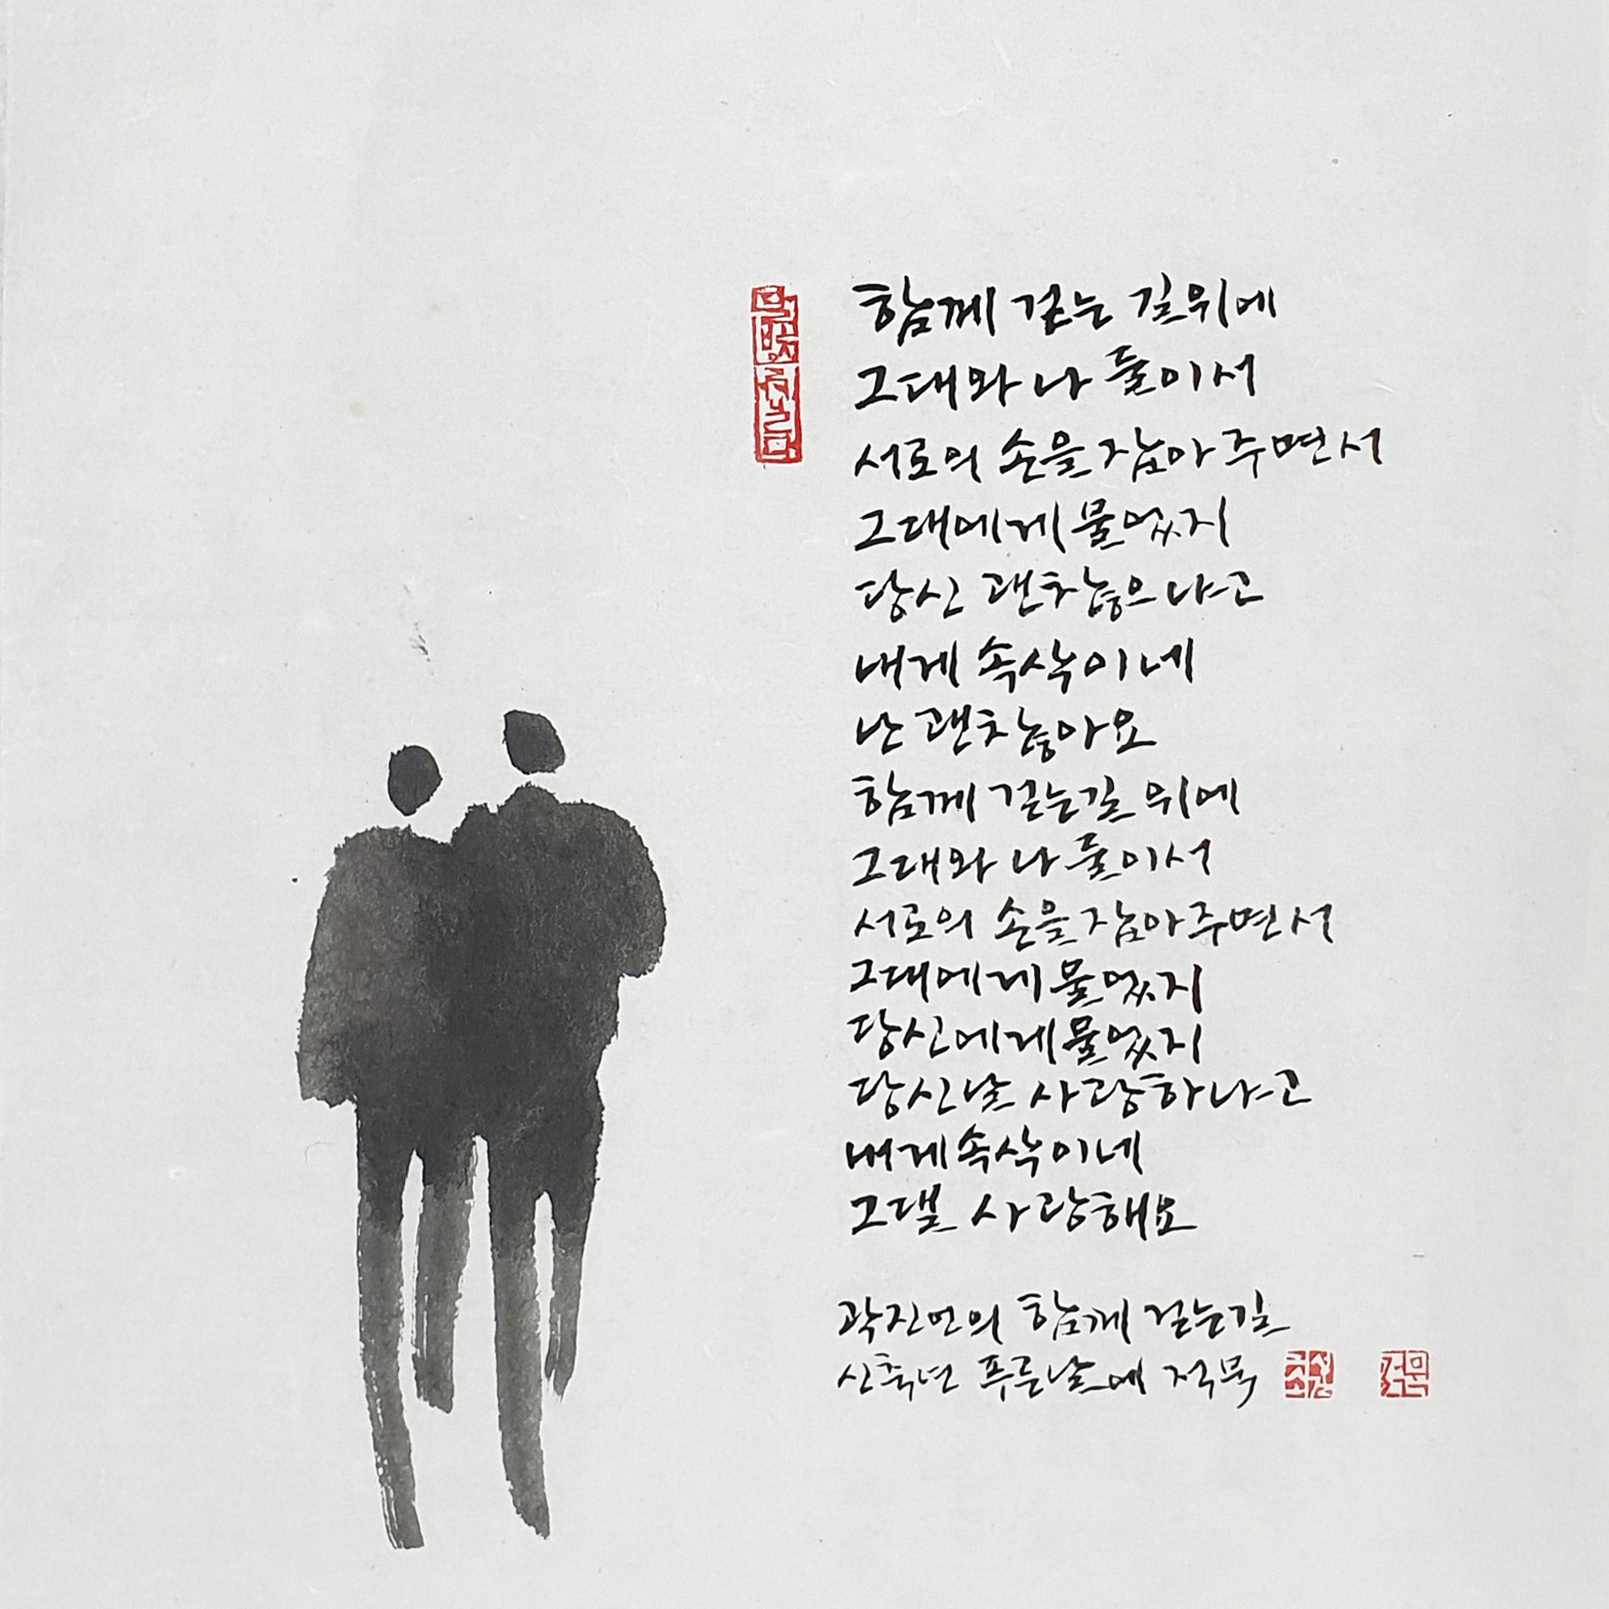 함께 걷는 길위에
그대와 나 둘이서
서로의 손을 잡아 주면서
그대에게 물었지
당신 괜찮으냐고
내게 속삭이네
난 괜찮아요
함께 걷는길 위에
그대와 나 둘이서
서로의 손을 잡아주면서
그대에게 물었지
당신에게 물었지
당신날 사랑하냐고
내게 속삭이네
그댈 사랑해요
곽진언의 함께 걷는길
신축년 푸른날에 적묵